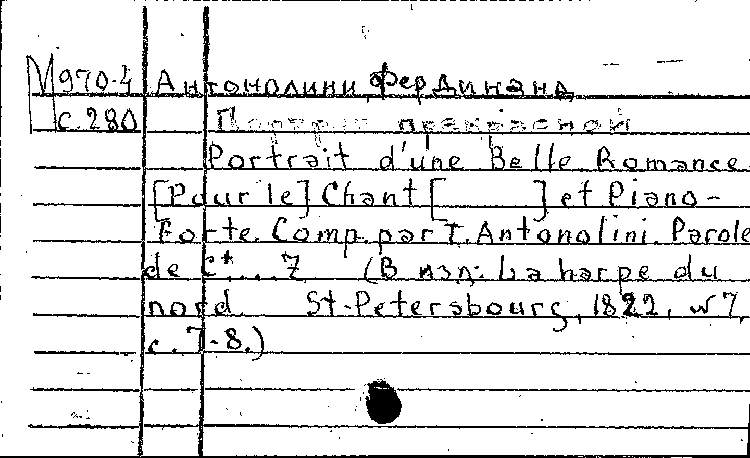 М970-4 Антонолини, Фердинанд
с.280 Портрет прекрасной
Portrait d'une Belle Romance
[Pour le] Chant [ ] et Piano-
Forte. Comp. par F. Antonolini. Parole
de C*...Z (В изд: La harpe du
nord St-Petersbourg, 1822, N 7,
с. 7-8.)